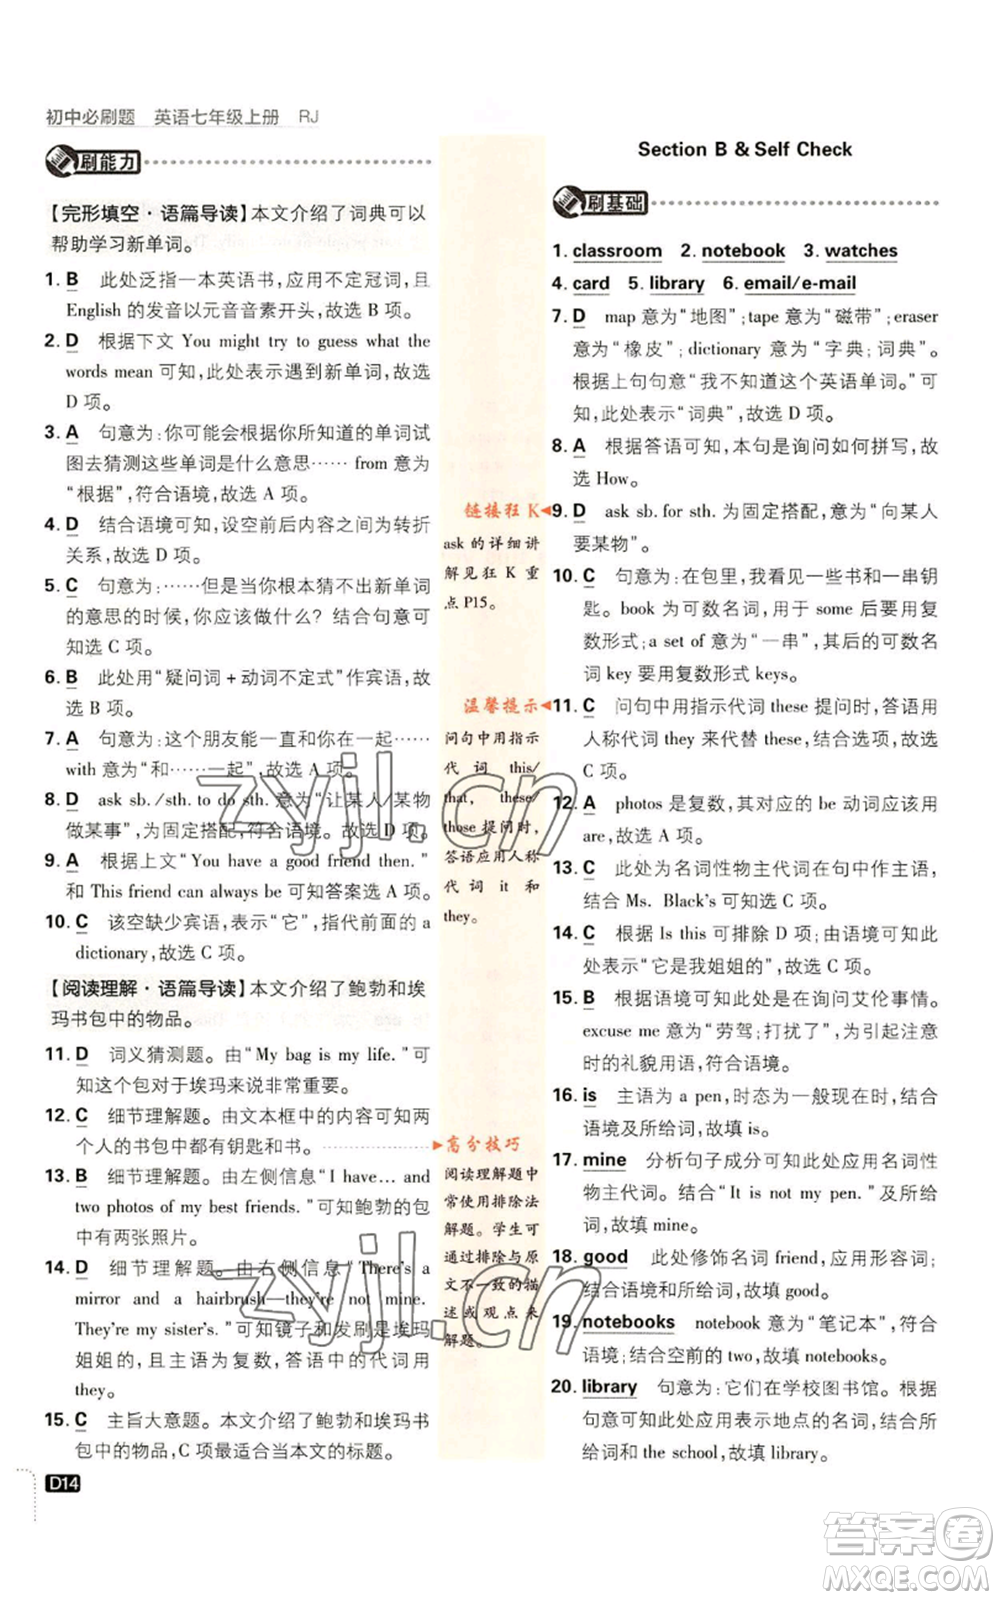 初中必刷题 英语七年级上册 RJ
刷能力
【完形填空·语篇导读】本文介绍了词典可以
帮助学习新单词。
1. B 此处泛指一本英语书，应用不定冠词，而
English 的发音以元音音素开头，故选 B 项。
2. D 根据下文 You might try to guess what the
words mean 可知，此处表示遇到新单词，故选
D 项。
3. A 句意为：你可能会根据你所知道的单词试
图去猜测这些单词是什么意思……from 意为
“根据”，符合语境，故选 A 项。
4. D 结合语境可知，设空前后内容之间为转折
关系，故选 D 项。
5. C 句意为：……但是当你根本猜不出新单词
的意思的时候，你应该做什么？结合句意可
知选 C 项。
6. B 此处用“疑问词 + 动词不定式”作宾语，故
选 B 项。
7. A 句意为：这个朋友能一直和你在一起——
with 意为“和……一起”，故选 A 项。
8. D ask sb. /sth. to do sth. 意为“让某人/某物
做某事”，为固定搭配，符合语境。故选 D 项。
9. A 根据上文“You have a good friend then. ”
和 This friend can always be 可知答案选 A 项。
10. C 该空缺少宾语，表示“它”，指代前面的 a
dictionary，故选 C 项。
【阅读理解·语篇导读】本文介绍了鲍勃和埃
玛书包中的物品。
11. D 词义猜测题。由“My bag is my life. ”可
知这个包对于埃玛来说非常重要。
12. C 细节理解题。由文本框中的内容可知两
个人的书包中都有钥匙和书。
13. B 细节理解题。由左侧信息“I have… and
two photos of my best friends. ”可知鲍勃的包
中有两张照片。
14. D 细节理解题。由右侧信息“There's a
mirror and a hairbrush—they're not mine.
They're my sister's. ”可知镜子和发刷是埃玛
姐姐的，且主语为复数，答语中的代词用
they。
15. C 主旨大意题。本文介绍了鲍勃和埃玛书
包中的物品，C 项最适合当本文的标题。
D14
链接狂 K
ask 的详细讲
解见狂 K 重
点 P15。
温馨提示
问句中用指示
代词 this/
that, these/
those 提问时，
答语应用人称
代词 it 和
they。
高分技巧
阅读理解题中
常使用排除法
解题。学生可
通过排除与原
文不一致的描
述或观点来
解题。
Section B & Self Check
刷基础
1. classroom 2. notebook 3. watches
4. card 5. library 6. email/e-mail
7. D map 意为“地图”；tape 意为“磁带”；eraser
意为“橡皮”；dictionary 意为“字典；词典”。
根据上句句意“我不知道这个英语单词。”可
知，此处表示“词典”，故选 D 项。
8. A 根据答语可知，本句是询问如何拼写，故
选 How。
9. D ask sb. for sth. 为固定搭配，意为“向某人
要某物”。
10. C 句意为：在包里，我看见一些书和一串钥
匙。book 为可数名词，用于 some 后要用复
数形式；a set of 意为“一串”，其后的可数名
词 key 要用复数形式 keys。
11. C 问句中用指示代词 these 提问时，答语用
人称代词 they 来代替 these，结合选项，故
选 C 项。
12. A photos 是复数，其对应的 be 动词应该用
are，故选 A 项。
13. C 此处为名词性物主代词在句中作主语，
结合 Ms. Black's 可知选 C 项。
14. C 根据 Is this 可排除 D 项；由语境可知此
处表示“它是我姐姐的”，故选 C 项。
15. B 根据语境可知此处是在询问艾伦事情。
excuse me 意为“劳驾；打扰了”，为引起注意
时的礼貌用语，符合语境。
16. is 主语为 a pen，时态为一般现在时，结合
语境及所给词可知，故填 is。
17. mine 分析句子成分可知此处应用名词性
物主代词。结合“It is not my pen. ”及所给
词，故填 mine。
18. good 此处修饰名词 friend，应用形容词；
结合语境和所给词，故填 good。
19. notebooks notebook 意为“笔记本”，符合
语境；结合空前的 two，故填 notebooks。
20. library 句意为：它们在学校图书馆。根据
句意可知此处应用表示地点的名词，结合所
给词和 the school，故填 library。
zyjl.cn
zyjl.cn
答案圈
MXQE.COM